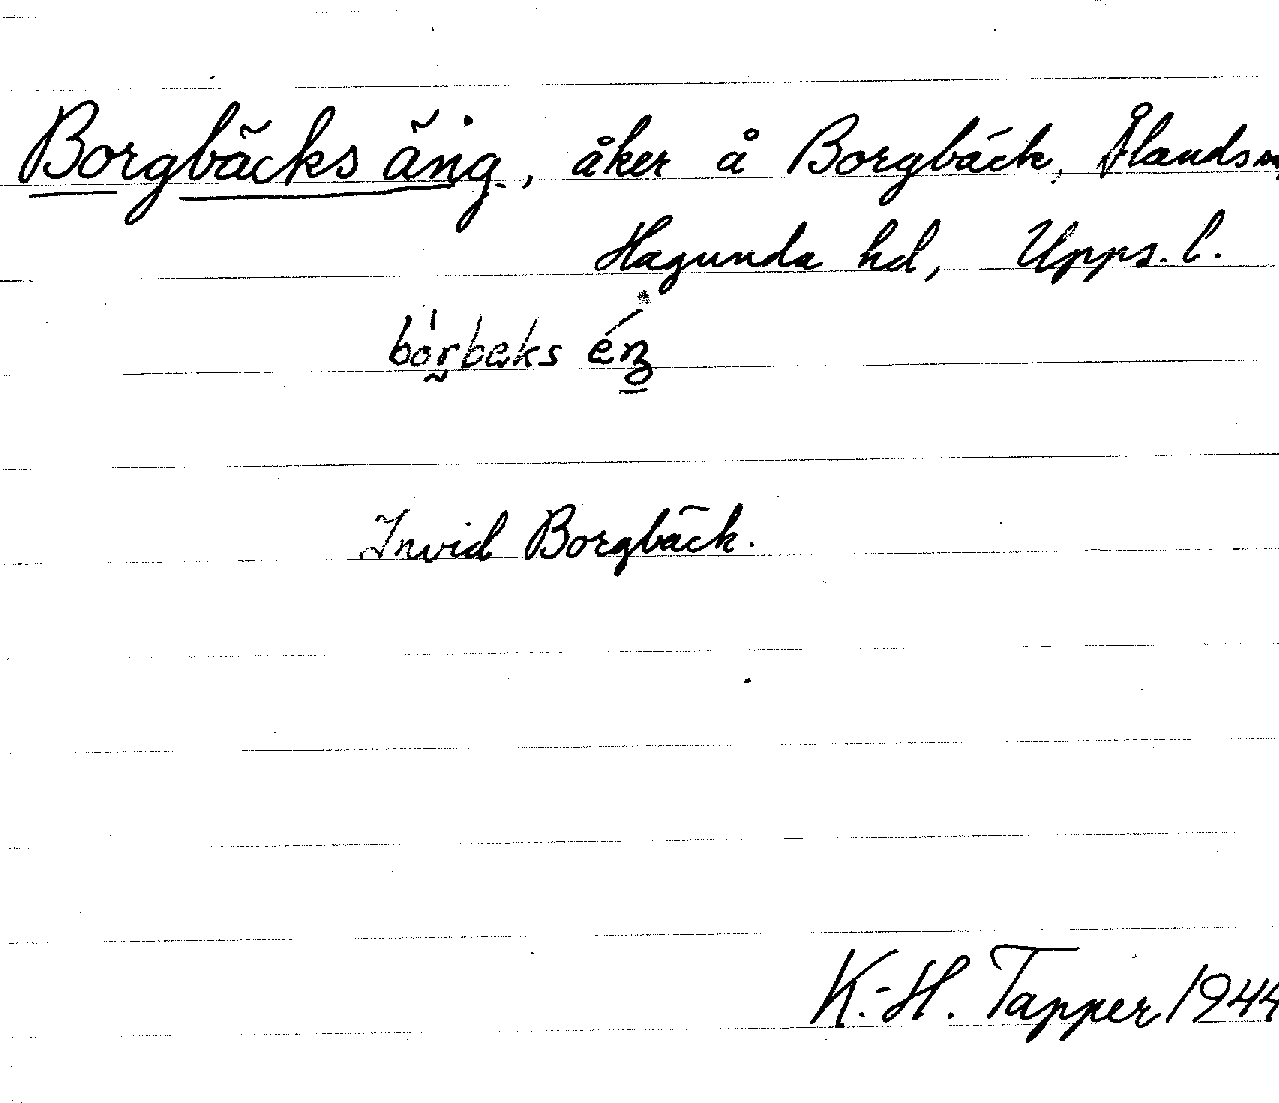 Borgbäcks äng, åker å Borgbäck, Ålands sn,
Hagunda hd, Upps. l.
Invid Borgbäck.
K.-H. Tapper 1944